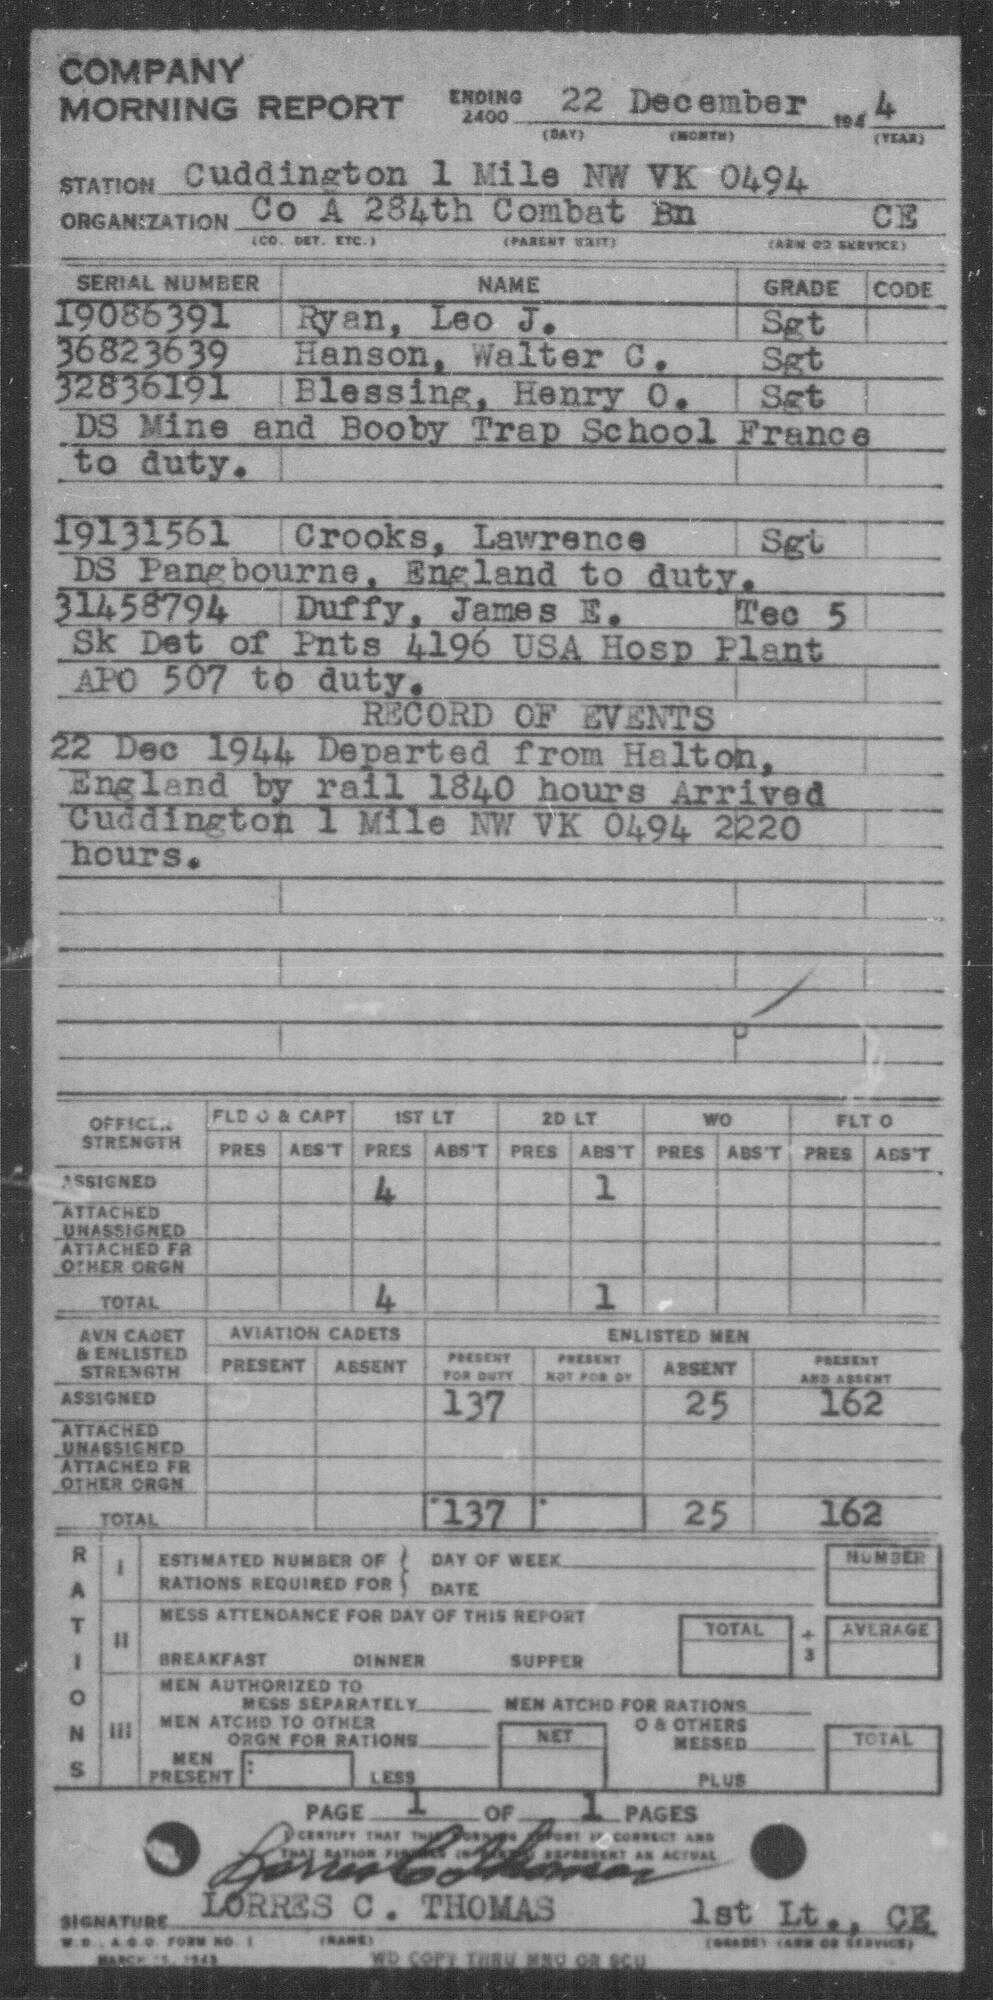 COMPANY
MORNING REPORT ENDING 2400 22 December 194 4
(DAY) (MONTH) (YEAR)
STATION Cuddington 1 Mile NW VK 0494
ORGANIZATION Co A 284th Combat Bn CE
(CO. DET. ETC.) (PARENT UNIT) (ARM OR SERVICE)
SERIAL NUMBER NAME GRADE CODE
19086391 Ryan, Leo J. Sgt
36823639 Hanson, Walter C. Sgt
32836191 Blessing, Henry O. Sgt
DS Mine and Booby Trap School France
to duty.
19131561 Crooks, Lawrence Sgt
DS Pangbourne, England to duty.
31458794 Duffy, James E. Tec 5
Sk Det of Pnts 4196 USA Hosp Plant
APO 507 to duty.
RECORD OF EVENTS
22 Dec 1944 Departed from Halton,
England by rail 1840 hours Arrived
Cuddington 1 Mile NW VK 0494 2220
hours.
OFFICER STRENGTH FLD O & CAPT 1ST LT 2D LT WO FLT O
PRES ABS'T PRES ABS'T PRES ABS'T PRES ABS'T PRES ABS'T
ASSIGNED 4 1
ATTACHED UNASSIGNED
ATTACHED FR OTHER ORGN
TOTAL 4 1
AVN CADET & ENLISTED STRENGTH AVIATION CADETS ENLISTED MEN
PRESENT ABSENT PRESENT FOR DUTY PRESENT NOT FOR DY ABSENT PRESENT AND ABSENT
ASSIGNED 137 25 162
ATTACHED UNASSIGNED
ATTACHED FR OTHER ORGN
TOTAL 137 25 162
RATIONS
I ESTIMATED NUMBER OF RATIONS REQUIRED FOR DAY OF WEEK DATE NUMBER
II MESS ATTENDANCE FOR DAY OF THIS REPORT TOTAL ÷ 3 AVERAGE
BREAKFAST DINNER SUPPER
III MEN AUTHORIZED TO MESS SEPARATELY MEN ATCHD FOR RATIONS
MEN ATCHD TO OTHER ORGN FOR RATIONS NET O & OTHERS MESSED TOTAL
MEN PRESENT LESS PLUS
PAGE 1 OF 1 PAGES
I CERTIFY THAT THIS MORNING REPORT IS CORRECT AND
THAT RATION FIGURES IN PART III REPRESENT AN ACTUAL
Lorres C Thomas
LORRES C. THOMAS 1st Lt., CE
SIGNATURE (NAME) (GRADE) (ARM OR SERVICE)
W.D., A.G.O. FORM NO. 1
MARCH 15, 1943
WD COPY THRU MRU OR SCU